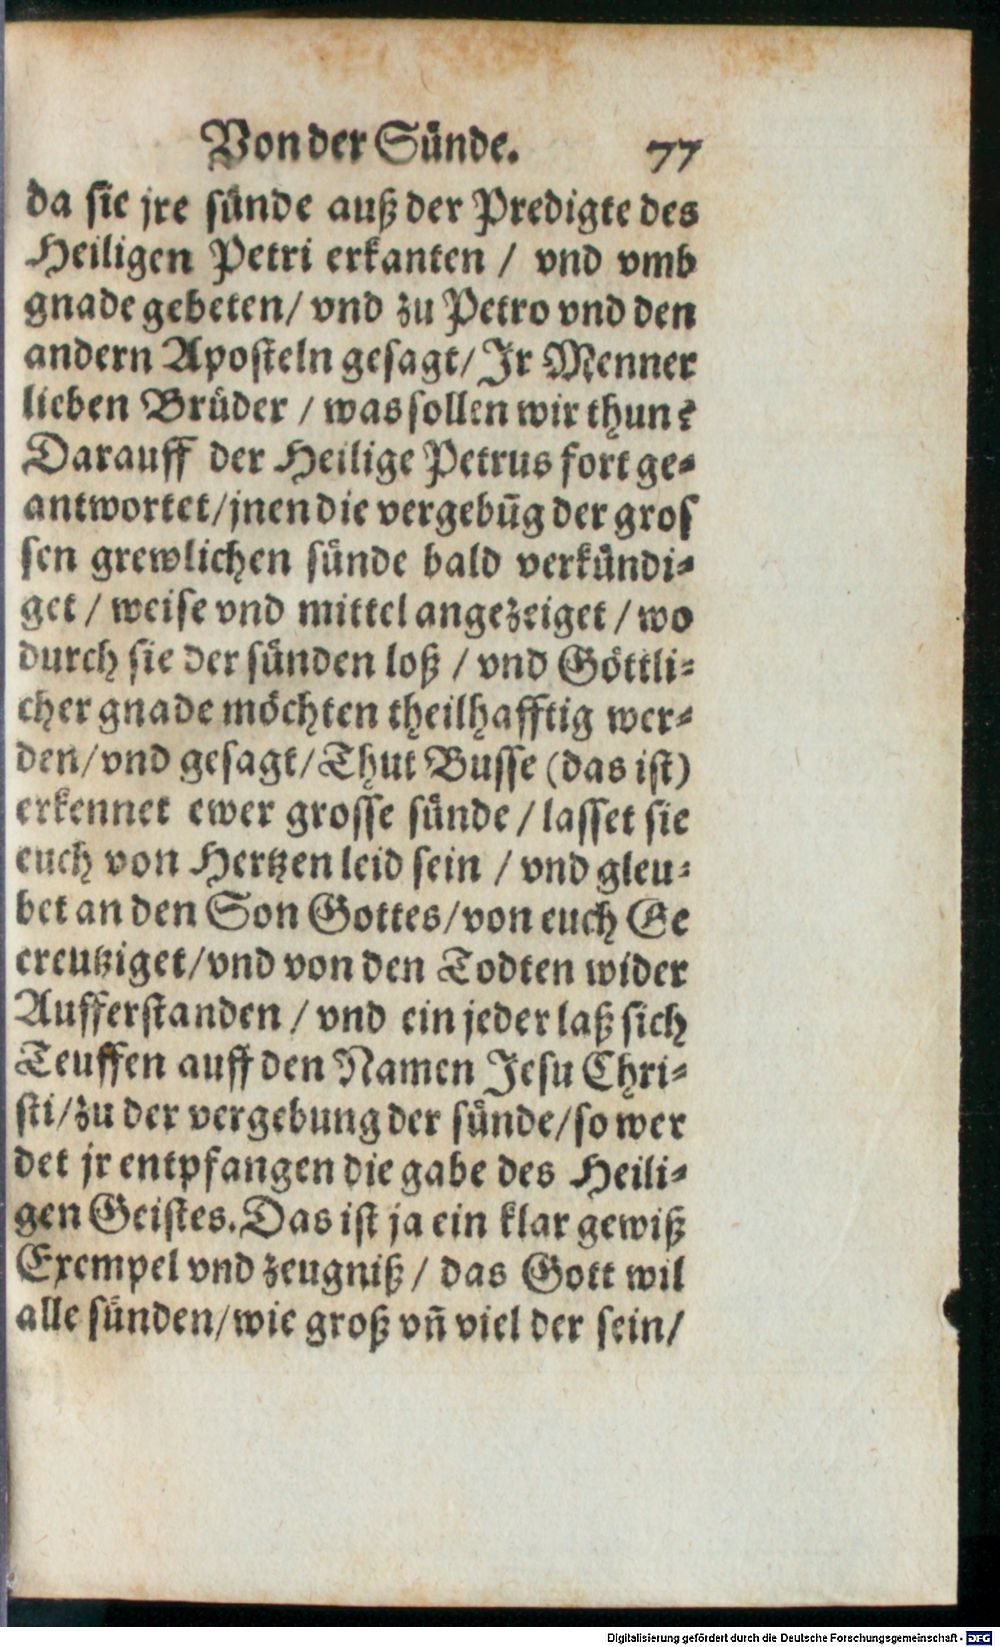 Von der Sünde. 77
da sie jre sünde auß der Predigte des
Heiligen Petri erkanten / vnd vmb
gnade gebeten/ vnd zu Petro vnd den
andern Aposteln gesagt/ Jr Menner
lieben Brüder / was sollen wir thun?
Darauff der Heilige Petrus fort ge-
antwortet/jnen die vergebūg der gros
sen grewlichen sünde bald verkündi-
get / weise vnd mittel angezeiget / wo
durch sie der sünden loß / vnd Göttli-
cher gnade möchten theilhafftig wer-
den/vnd gesagt/Thut Busse (das ist)
erkennet ewer grosse sünde / lasset sie
euch von Hertzen leid sein / vnd gleu-
bet an den Son Gottes/von euch Ge
creutziget/vnd von den Todten wider
Aufferstanden / vnd ein jeder laß sich
Teuffen auff den Namen Jesu Chri-
sti/zu der vergebung der sünde/so wer
det jr entpfangen die gabe des Heili-
gen Geistes. Das ist ja ein klar gewiß
Exempel vnd zeugniß / das Gott wil
alle sünden/wie groß vn̄ viel der sein/
Digitalisierung gefördert durch die Deutsche Forschungsgemeinschaft - DFG